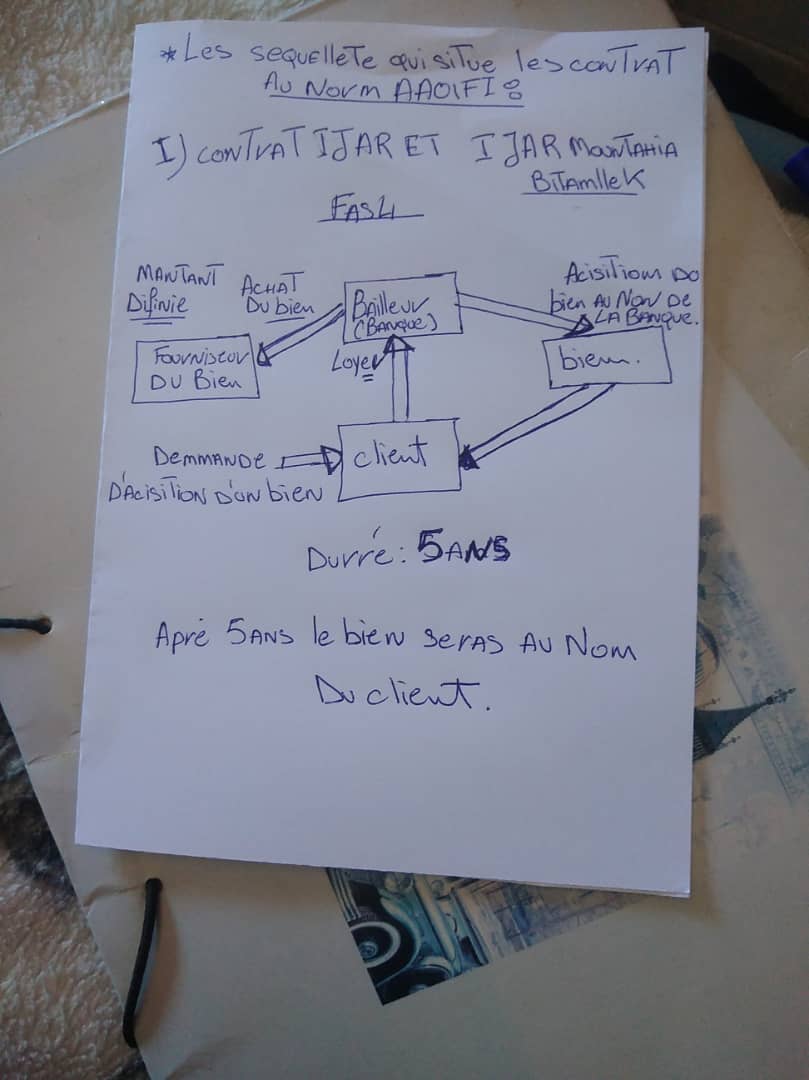 * Les sequellete qui situe les contrat
Au Norm AAOIFI :
I) contrat IJAR ET IJAR Mountahia
Bitamllek
FAS4
MANTANT
Difinie
ACHAT
Du bien
Bailleur
(BANQUE)
Acisitiom DU
bien AU NON DE
LA BANQUE.
Fourniseur
DU Bien
Loyer
biem.
Demmande
D'Acisition D'un bien
client
Durré : 5 ANS
Apré 5 ANS le bien seras AU Nom
Du client.